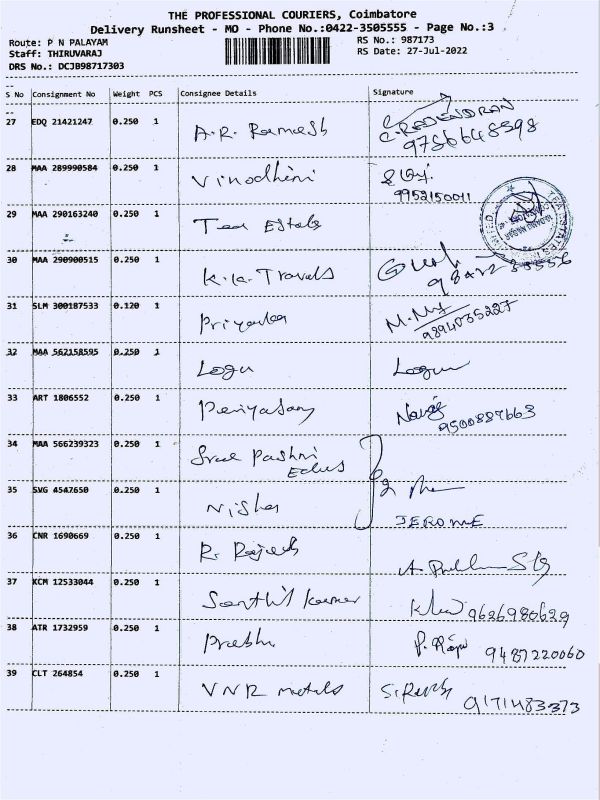 THE PROFESSIONAL COURIERS, Coimbatore
Delivery Runsheet - MO - Phone No.:0422-3505555 - Page No.:3
Route: P N PALAYAM RS No.: 987173
Staff: THIRUVARAJ RS Date: 27-Jul-2022
DRS No.: DCJB98717303
S No Consignment No Weight PCS Consignee Details Signature
27 EDQ 21421247 0.250 1 A.R. Ramesh C. RAJENDRAN
9786648598
28 MAA 289990584 0.250 1 Vinodhini
9952150011
29 MAA 290163240 0.250 1 Tea Estate
30 MAA 290900515 0.250 1 K.K. Travels
31 SLM 300187533 0.120 1 Priyanka
9894035227
32 MAA 562158595 0.250 1 Logu Logu
33 ART 1806552 0.250 1 Periyasamy
9500887663
34 MAA 566239323 0.250 1 Sree
35 SVG 4547650 0.250 1 Nisha
JEROME
36 CNR 1690669 0.250 1 R. Rajesh
37 KCM 12533044 0.250 1 Senthil Kumar 9626980629
38 ATR 1732959 0.250 1 Prabhu P. Raja 9487220060
39 CLT 264854 0.250 1 VNR metals 9171483373